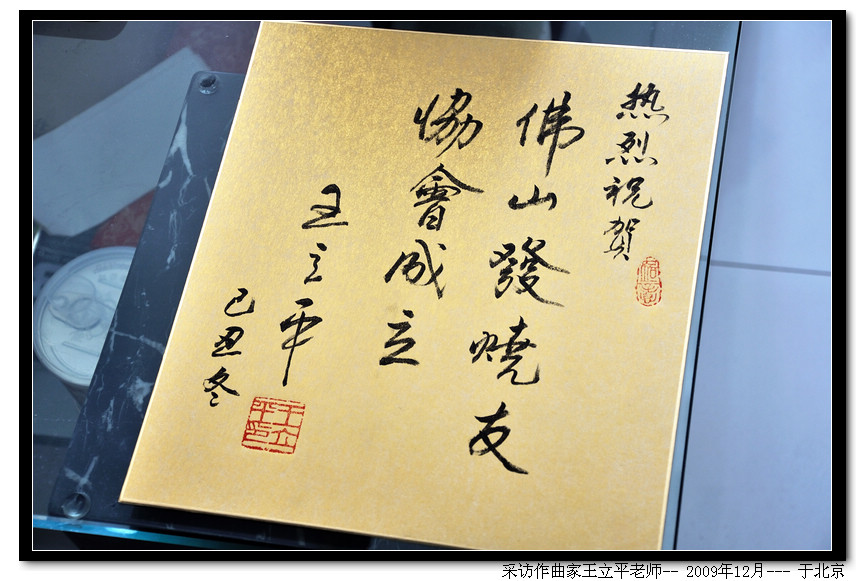 热烈祝贺
佛山發燒友
協會成立
王立平
己丑冬
王立平印
采访作曲家王立平老师-- 2009年12月--- 于北京